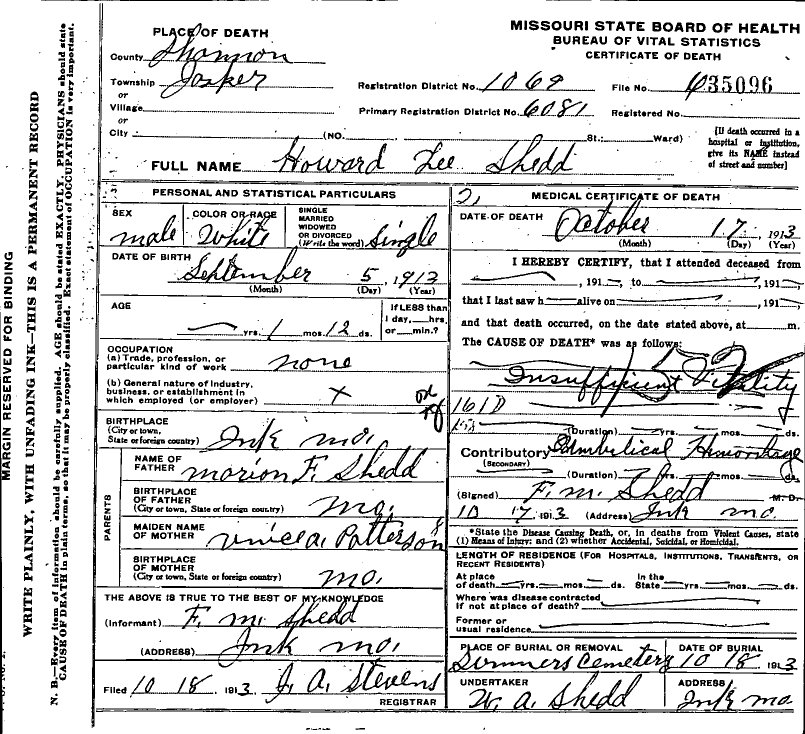 MISSOURI STATE BOARD OF HEALTH
BUREAU OF VITAL STATISTICS
CERTIFICATE OF DEATH
PLACE OF DEATH
County Shannon
Township Jasper
or
Village
or
City (NO. St.: Ward)
Registration District No. 1069 File No. 35096
Primary Registration District No. 6081 Registered No.
[If death occurred in a
hospital or institution,
give its NAME instead
of street and number]
FULL NAME Howard Lee Shedd
PERSONAL AND STATISTICAL PARTICULARS
SEX male
COLOR OR RACE White
SINGLE
MARRIED
WIDOWED
OR DIVORCED
(Write the word) Single
DATE OF BIRTH
September 5, 1913
(Month) (Day) (Year)
AGE
yrs. 1 mos. 12 ds.
If LESS than
1 day, hrs.
or min.?
OCCUPATION
(a) Trade, profession, or
particular kind of work none
(b) General nature of industry,
business, or establishment in
which employed (or employer) x
BIRTHPLACE
(City or town,
State or foreign country) Ink mo.
PARENTS
NAME OF
FATHER Marion F. Shedd
BIRTHPLACE
OF FATHER
(City or town, State or foreign country) mo.
MAIDEN NAME
OF MOTHER Patterson
BIRTHPLACE
OF MOTHER
(City or town, State or foreign country) mo.
THE ABOVE IS TRUE TO THE BEST OF MY KNOWLEDGE
(Informant) F. M. Shedd
(ADDRESS) Ink mo.
Filed 10 18 1913 J. A. Stevens
REGISTRAR
2, MEDICAL CERTIFICATE OF DEATH
DATE OF DEATH October 17 1913
(Month) (Day) (Year)
I HEREBY CERTIFY, that I attended deceased from
, 191 , to , 191 ,
that I last saw h alive on , 191 ,
and that death occurred, on the date stated above, at m.
The CAUSE OF DEATH* was as follows:
Insufficient Vitality
161D
(Duration) yrs. mos. ds.
Contributory Umbilical Hemorrhage
(SECONDARY)
(Duration) yrs. mos. ds.
(Signed) F. M. Shedd M. D.
10 17 1913 (Address) Ink mo.
*State the Disease Causing Death, or, in deaths from Violent Causes, state
(1) Means of Injury; and (2) whether Accidental, Suicidal, or Homicidal.
LENGTH OF RESIDENCE (FOR HOSPITALS, INSTITUTIONS, TRANSIENTS, OR
RECENT RESIDENTS)
At place In the
of death yrs. mos. ds. State yrs. mos. ds.
Where was disease contracted
if not at place of death?
Former or
usual residence
PLACE OF BURIAL OR REMOVAL DATE OF BURIAL
Summers Cemetery 10 18 1913
UNDERTAKER ADDRESS
W. A. Shedd Ink mo.
MARGIN RESERVED FOR BINDING
WRITE PLAINLY, WITH UNFADING INK—THIS IS A PERMANENT RECORD
N. B.—Every item of information should be carefully supplied. AGE should be stated EXACTLY. PHYSICIANS should state
CAUSE OF DEATH in plain terms, so that it may be properly classified. Exact statement of OCCUPATION is very important.